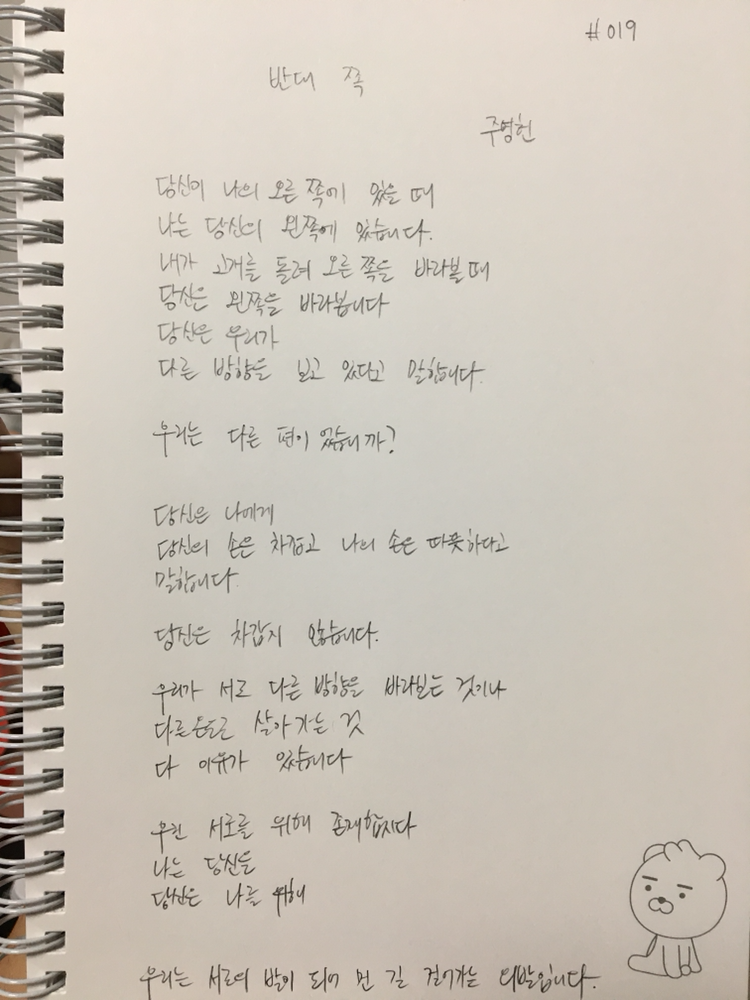 #019
반대 쪽
주영헌
당신이 나의 오른 쪽에 있을 때
나는 당신의 왼쪽에 있습니다.
내가 고개를 돌려 오른 쪽을 바라볼 때
당신은 왼쪽을 바라봅니다
당신은 우리가
다른 방향을 보고 있다고 말합니다.
우리는 다른 편이었습니까?
당신은 나에게
당신의 손은 차갑고 나의 손은 따뜻하다고
말합니다.
당신은 차갑지 않습니다.
우리가 서로 다른 방향을 바라보는 것이나
다른 온도로 살아가는 것
다 이유가 있습니다
우린 서로를 위해 존재합시다
나는 당신을
당신은 나를 위해
우리는 서로의 발이 되어 먼 길 걸어가는 입니다.